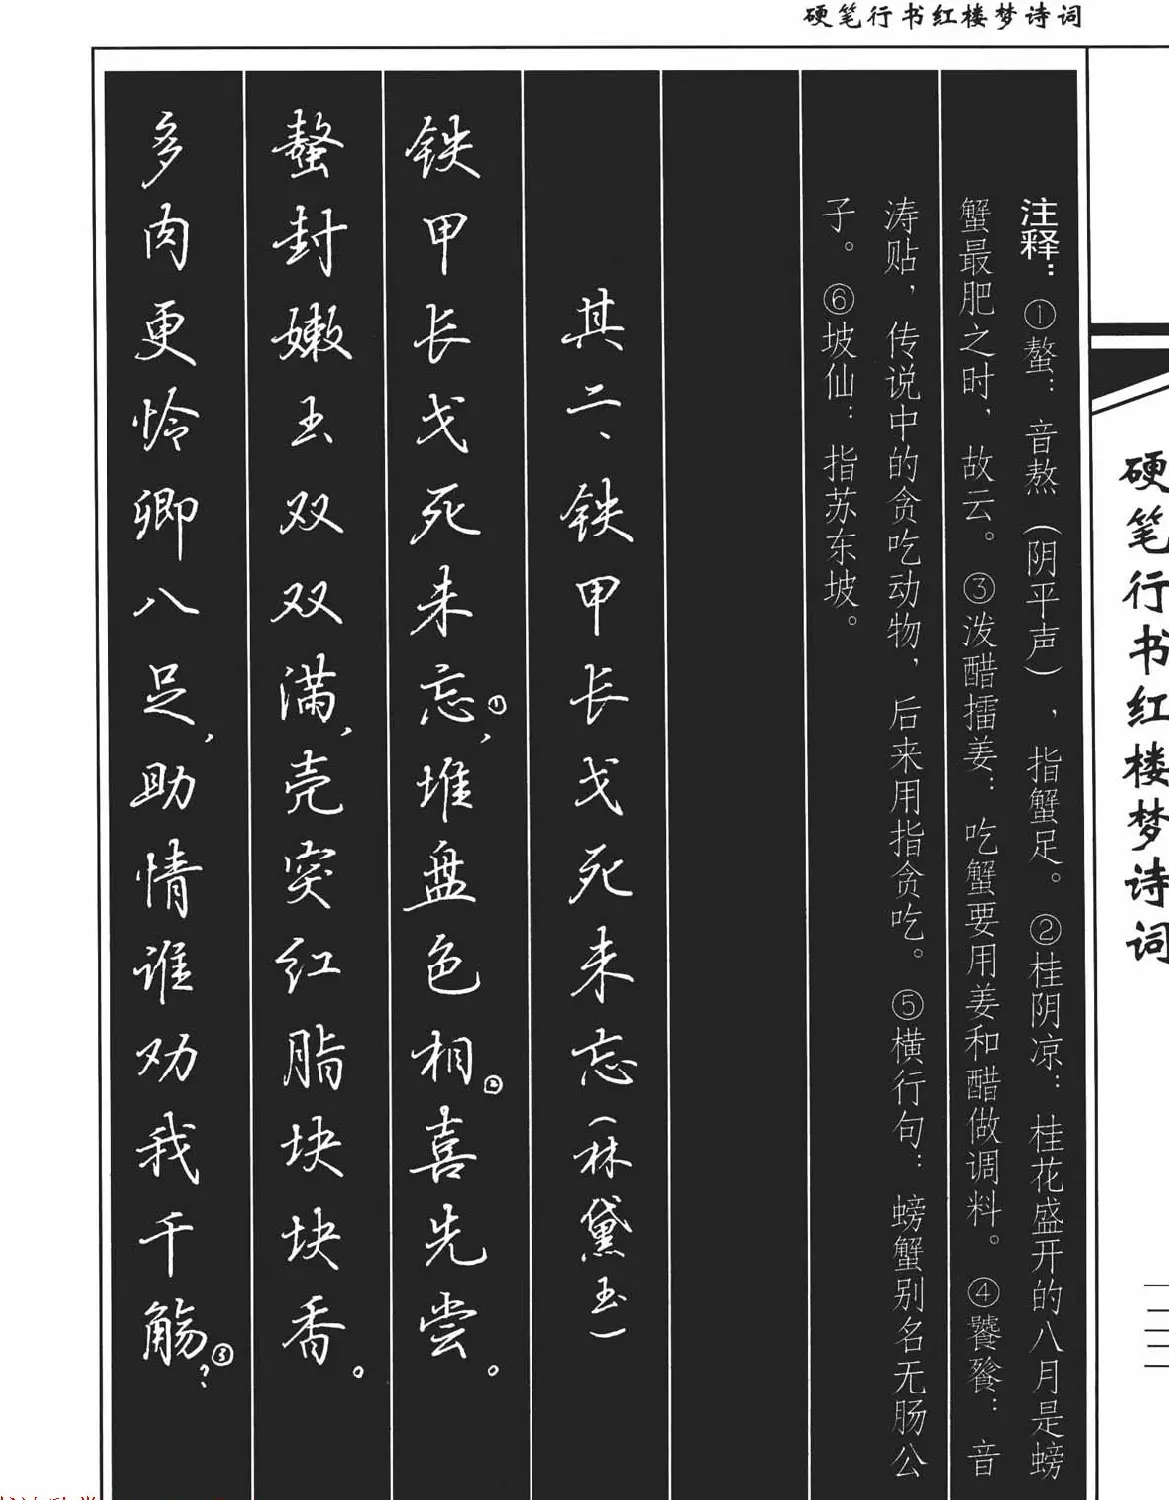 硬笔行书红楼梦诗词
硬笔行书红楼梦诗词
注释：①螯：音熬（阴平声），指蟹足。②桂阴凉：桂花盛开的八月是螃
蟹最肥之时，故云。③泼醋擂姜：吃蟹要用姜和醋做调料。④饕餮：音
涛贴，传说中的贪吃动物，后来用指贪吃。⑤横行句：螃蟹别名无肠公
子。⑥坡仙：指苏东坡。
其二、铁甲长戈死未忘（林黛玉）
铁甲长戈死未忘①，堆盘色相②喜先尝。
螯封嫩玉双双满，壳突红脂块块香。
多肉更怜卿八足，助情谁劝我千觞③？